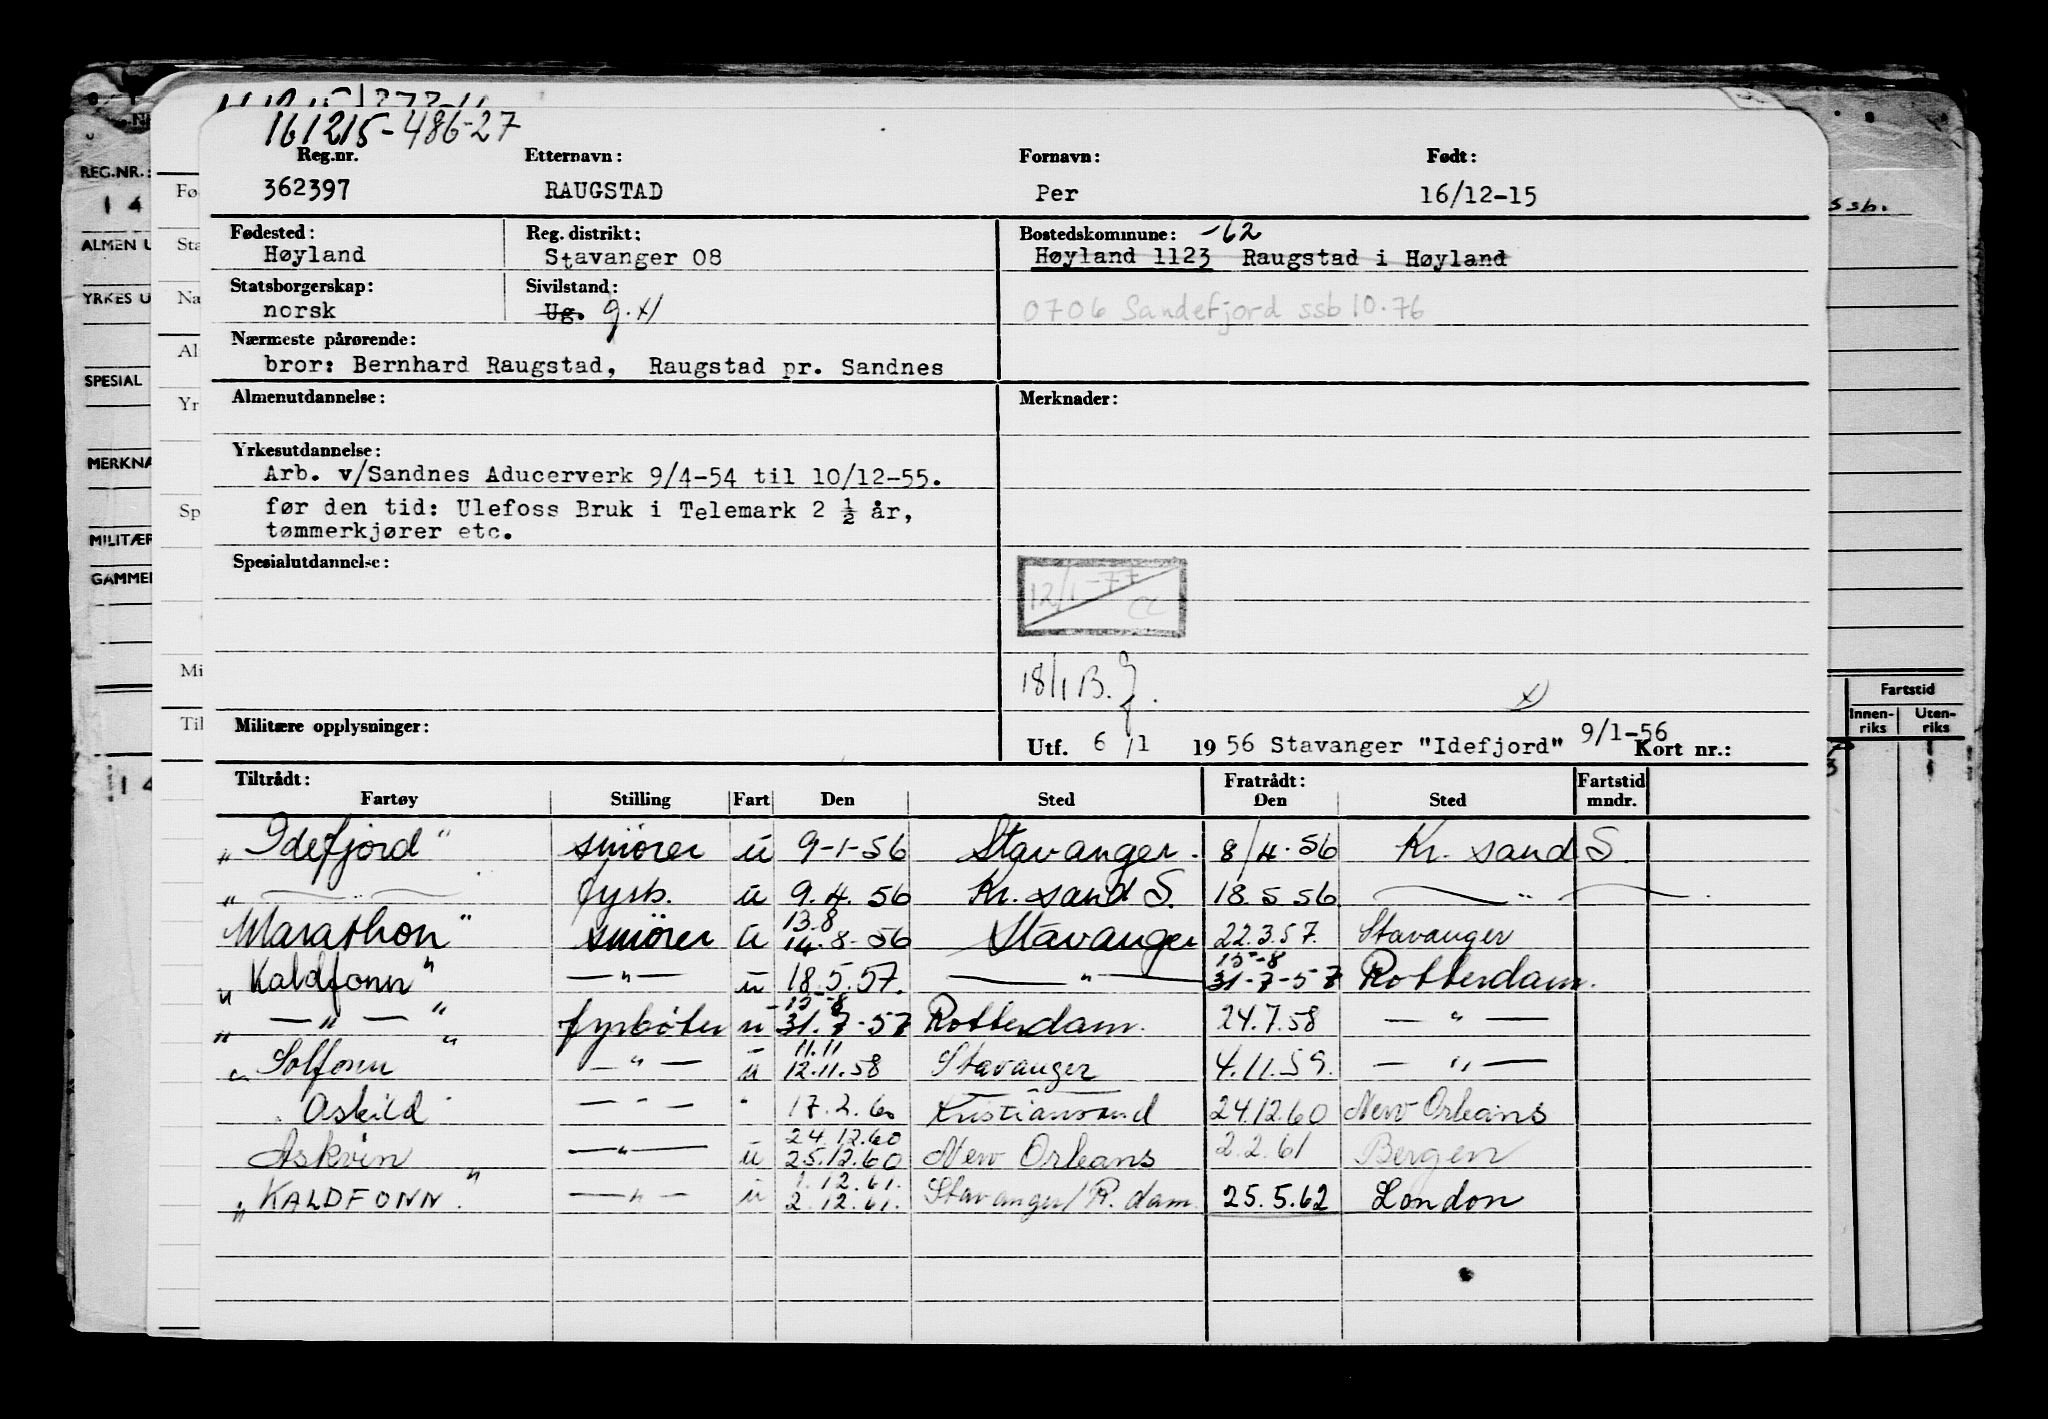 161215-486-27
Reg.nr. Etternavn: Fornavn: Født:
362397 RAUGSTAD Per 16/12-15
Fødested: Reg. distrikt: Bostedskommune: -62
Høyland Stavanger 08 Høyland 1123 Raugstad i Høyland
Statsborgerskap: Sivilstand:
norsk Ug. g. x) 0706 Sandefjord ssb 10.76
Nærmeste pårørende:
bror: Bernhard Raugstad, Raugstad pr. Sandnes
Almenutdannelse: Merknader:
Yrkesutdannelse:
Arb. v/Sandnes Aducerverk 9/4-54 til 10/12-55.
før den tid: Ulefoss Bruk i Telemark 2 ½ år,
tømmerkjører etc.
Spesialutdannelse:
12/1-77
18/1 B.
x)
Militære opplysninger:
Utf. 6/1 1956 Stavanger "Idefjord" 9/1-56 Kort nr.:
Tiltrådt: Fratrådt: Fartstid
Fartøy Stilling Fart Den Sted Den Sted mndr.
"Idefjord" smører u 9-1-56 Stavanger. 8/4.56 Kr. sand S.
" fyrb. u 9.4.56 Kr. sand S. 18.5.56 "
13.8
Marathon" smører u 14.8-56 Stavanger 22.3.57. Stavanger
15-8
"Kaldfonn" —"— u 18.5.57. —"— 31-7-57 Rotterdam.
15-8
" —"— " fyrbøter u 31.7-57 Rotterdam. 24.7.58 —"—
11.11
"Solfonn" —"— u 12.11.58 Stavanger 4.11.59. —"—
Askild —"— " 17.2.60 Kristiansand 24.12.60 New Orleans
24.12.60
Askvin —"— u 25.12.60 New Orleans 2.2.61 Bergen
1.12.61.
"KALDFONN." —"— u 2.12.61. Stavanger/R.dam. 25.5.62 London
REG.NR.:
14
ALMEN U
YRKES U
SPESIAL
MERKNA
MILITÆR
GAMMEL
14
Fø
Sta
Na
Al
Yr
Sp
Mi
Til
ssb.
Fartstid
Innen-
riks Uten-
riks